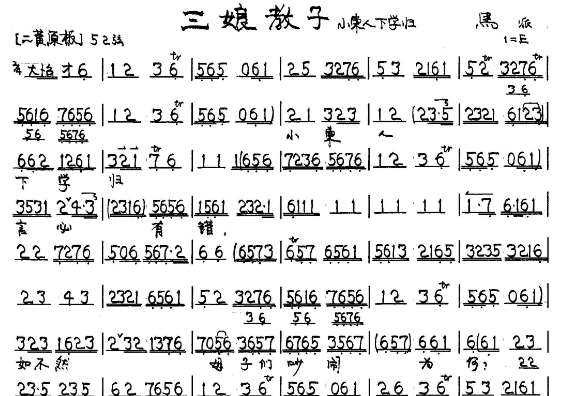 三娘教子 小東人下学归 馬派
[二黄原板] 52弦 1=E
大台 才6 | 12 36 tr | 565 061 | 25 3276 | 53 2161 | 52 tr 3276 tr
36
5616 7656 | 12 36 tr | 565 061) | 21 323 | 12 (23·5 | 2321 6123
56 5676 小東人
662 1261 | 321 76 tr | 11 1(656 | 7236 5676 | 12 36 tr | 565 061)
下学归
3531 24·3 | (2316) 5656 | 1561 232·1 | 6111 11 | 11 11 | 1·7 6·161
言必有錯,
22 7276 | 506 567·2 | 66 (6573 | 657 tr 6561 | 5613 2165 | 3235 3216
23 43 | 2321 6561 | 52 3276 | 5616 7656 | 12 36 tr | 565 061)
36 56 5676
323 1623 | 232 1376 | 7056 3657 | 6765 3567 | (657) 661 | 6(61 23
如不然 母子们吵闹为何? 22
23·5 235 | 62 7656 | 12 36 tr | 565 061 | 26 36 tr | 53 2161